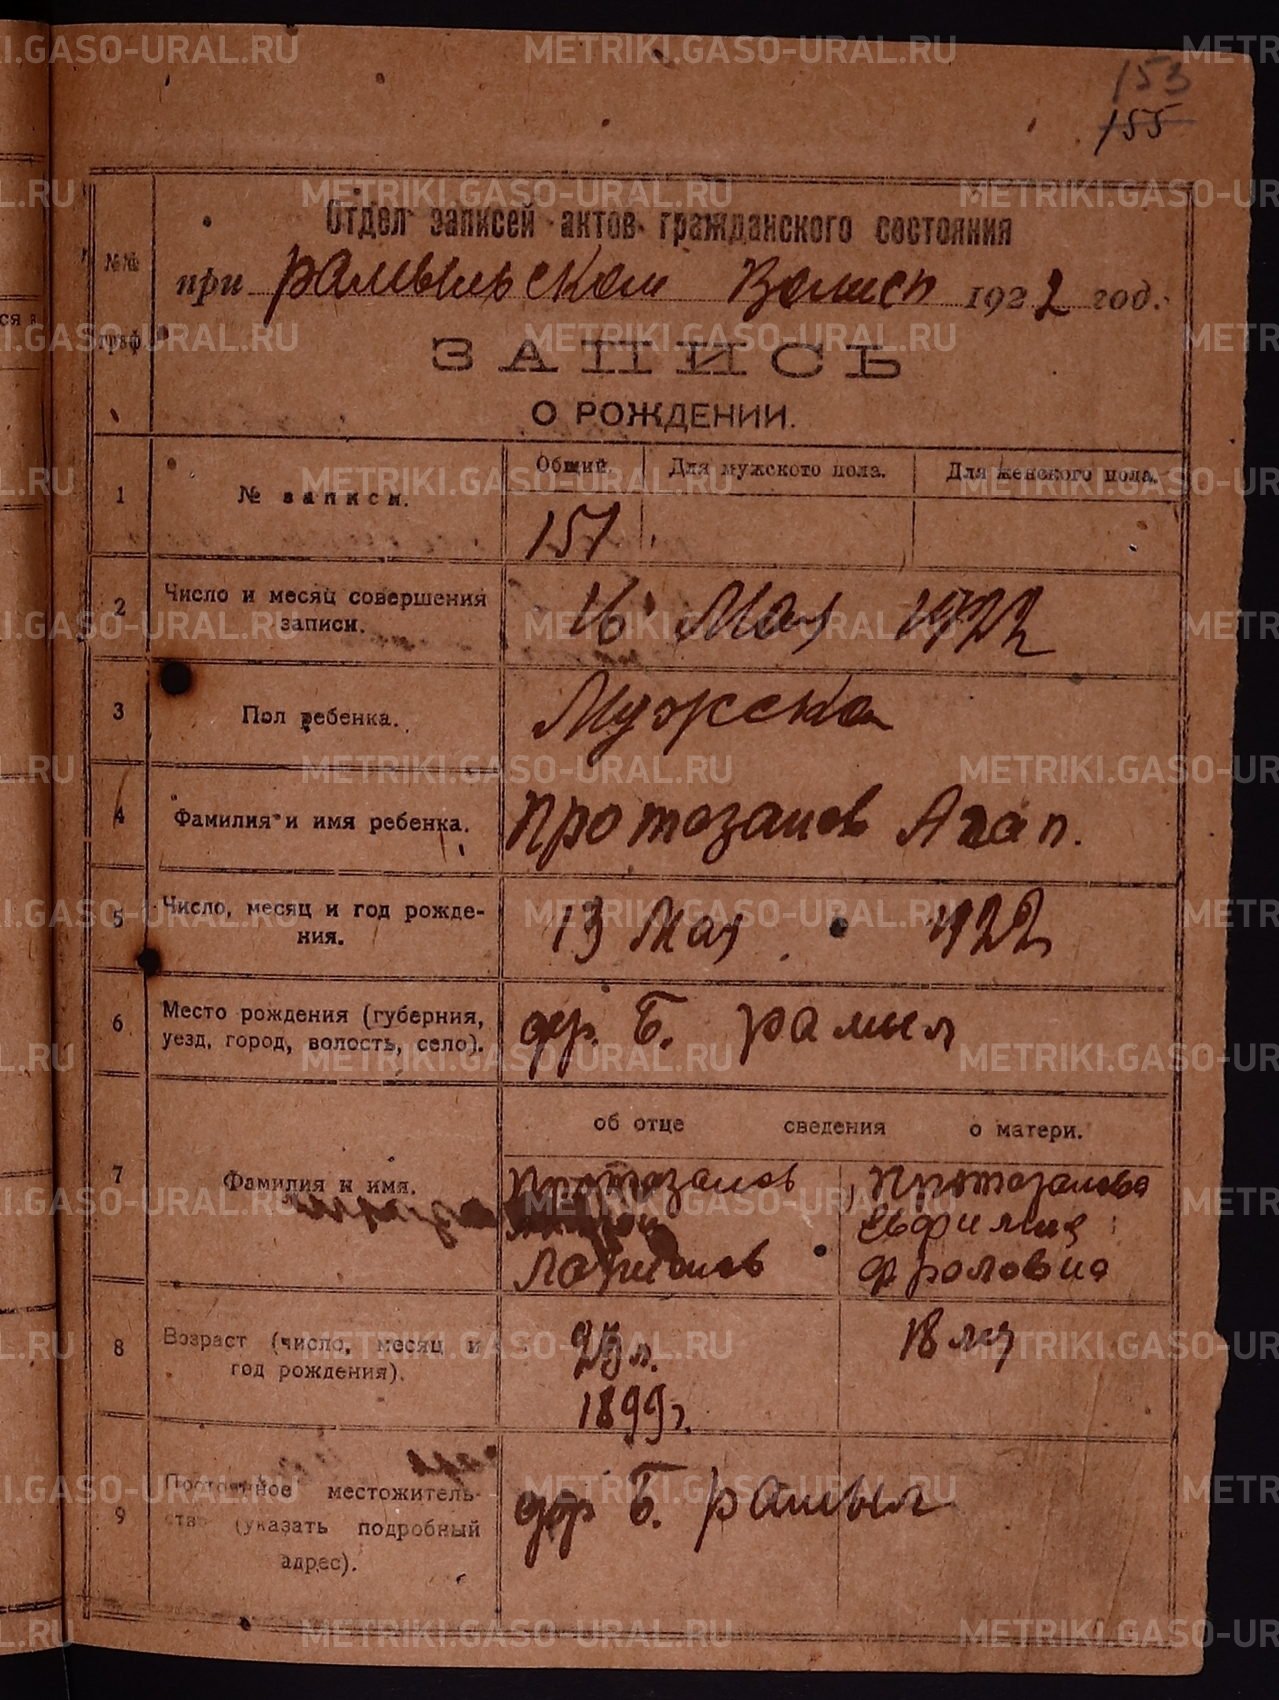 153
155
Отдел записей актов гражданского состояния
№№ граф
при рамыльском Волисп 1922 год.
ЗАПИСЬ
О РОЖДЕНИИ.
Общий. Для мужского пола. Для женского пола.
1 № записи.
157
2 Число и месяц совершения записи.
16 Мая 1922
3 Пол ребенка.
Мужска
4 Фамилия и имя ребенка.
Протозанов Агап.
5 Число, месяц и год рождения.
13 Мая 1922
6 Место рождения (губерния, уезд, город, волость, село).
дер. Б. рамыл
об отце сведения о матери.
7 Фамилия и имя.
Протозанов
Ларионов
Протозанова
Евфимия
фроловна
8 Возраст (число, месяц и год рождения).
23 л.
1899 г.
18 лет
9 Постоянное местожительство (указать подробный адрес).
дер Б. рамыл
METRIKI.GASO-URAL.RU